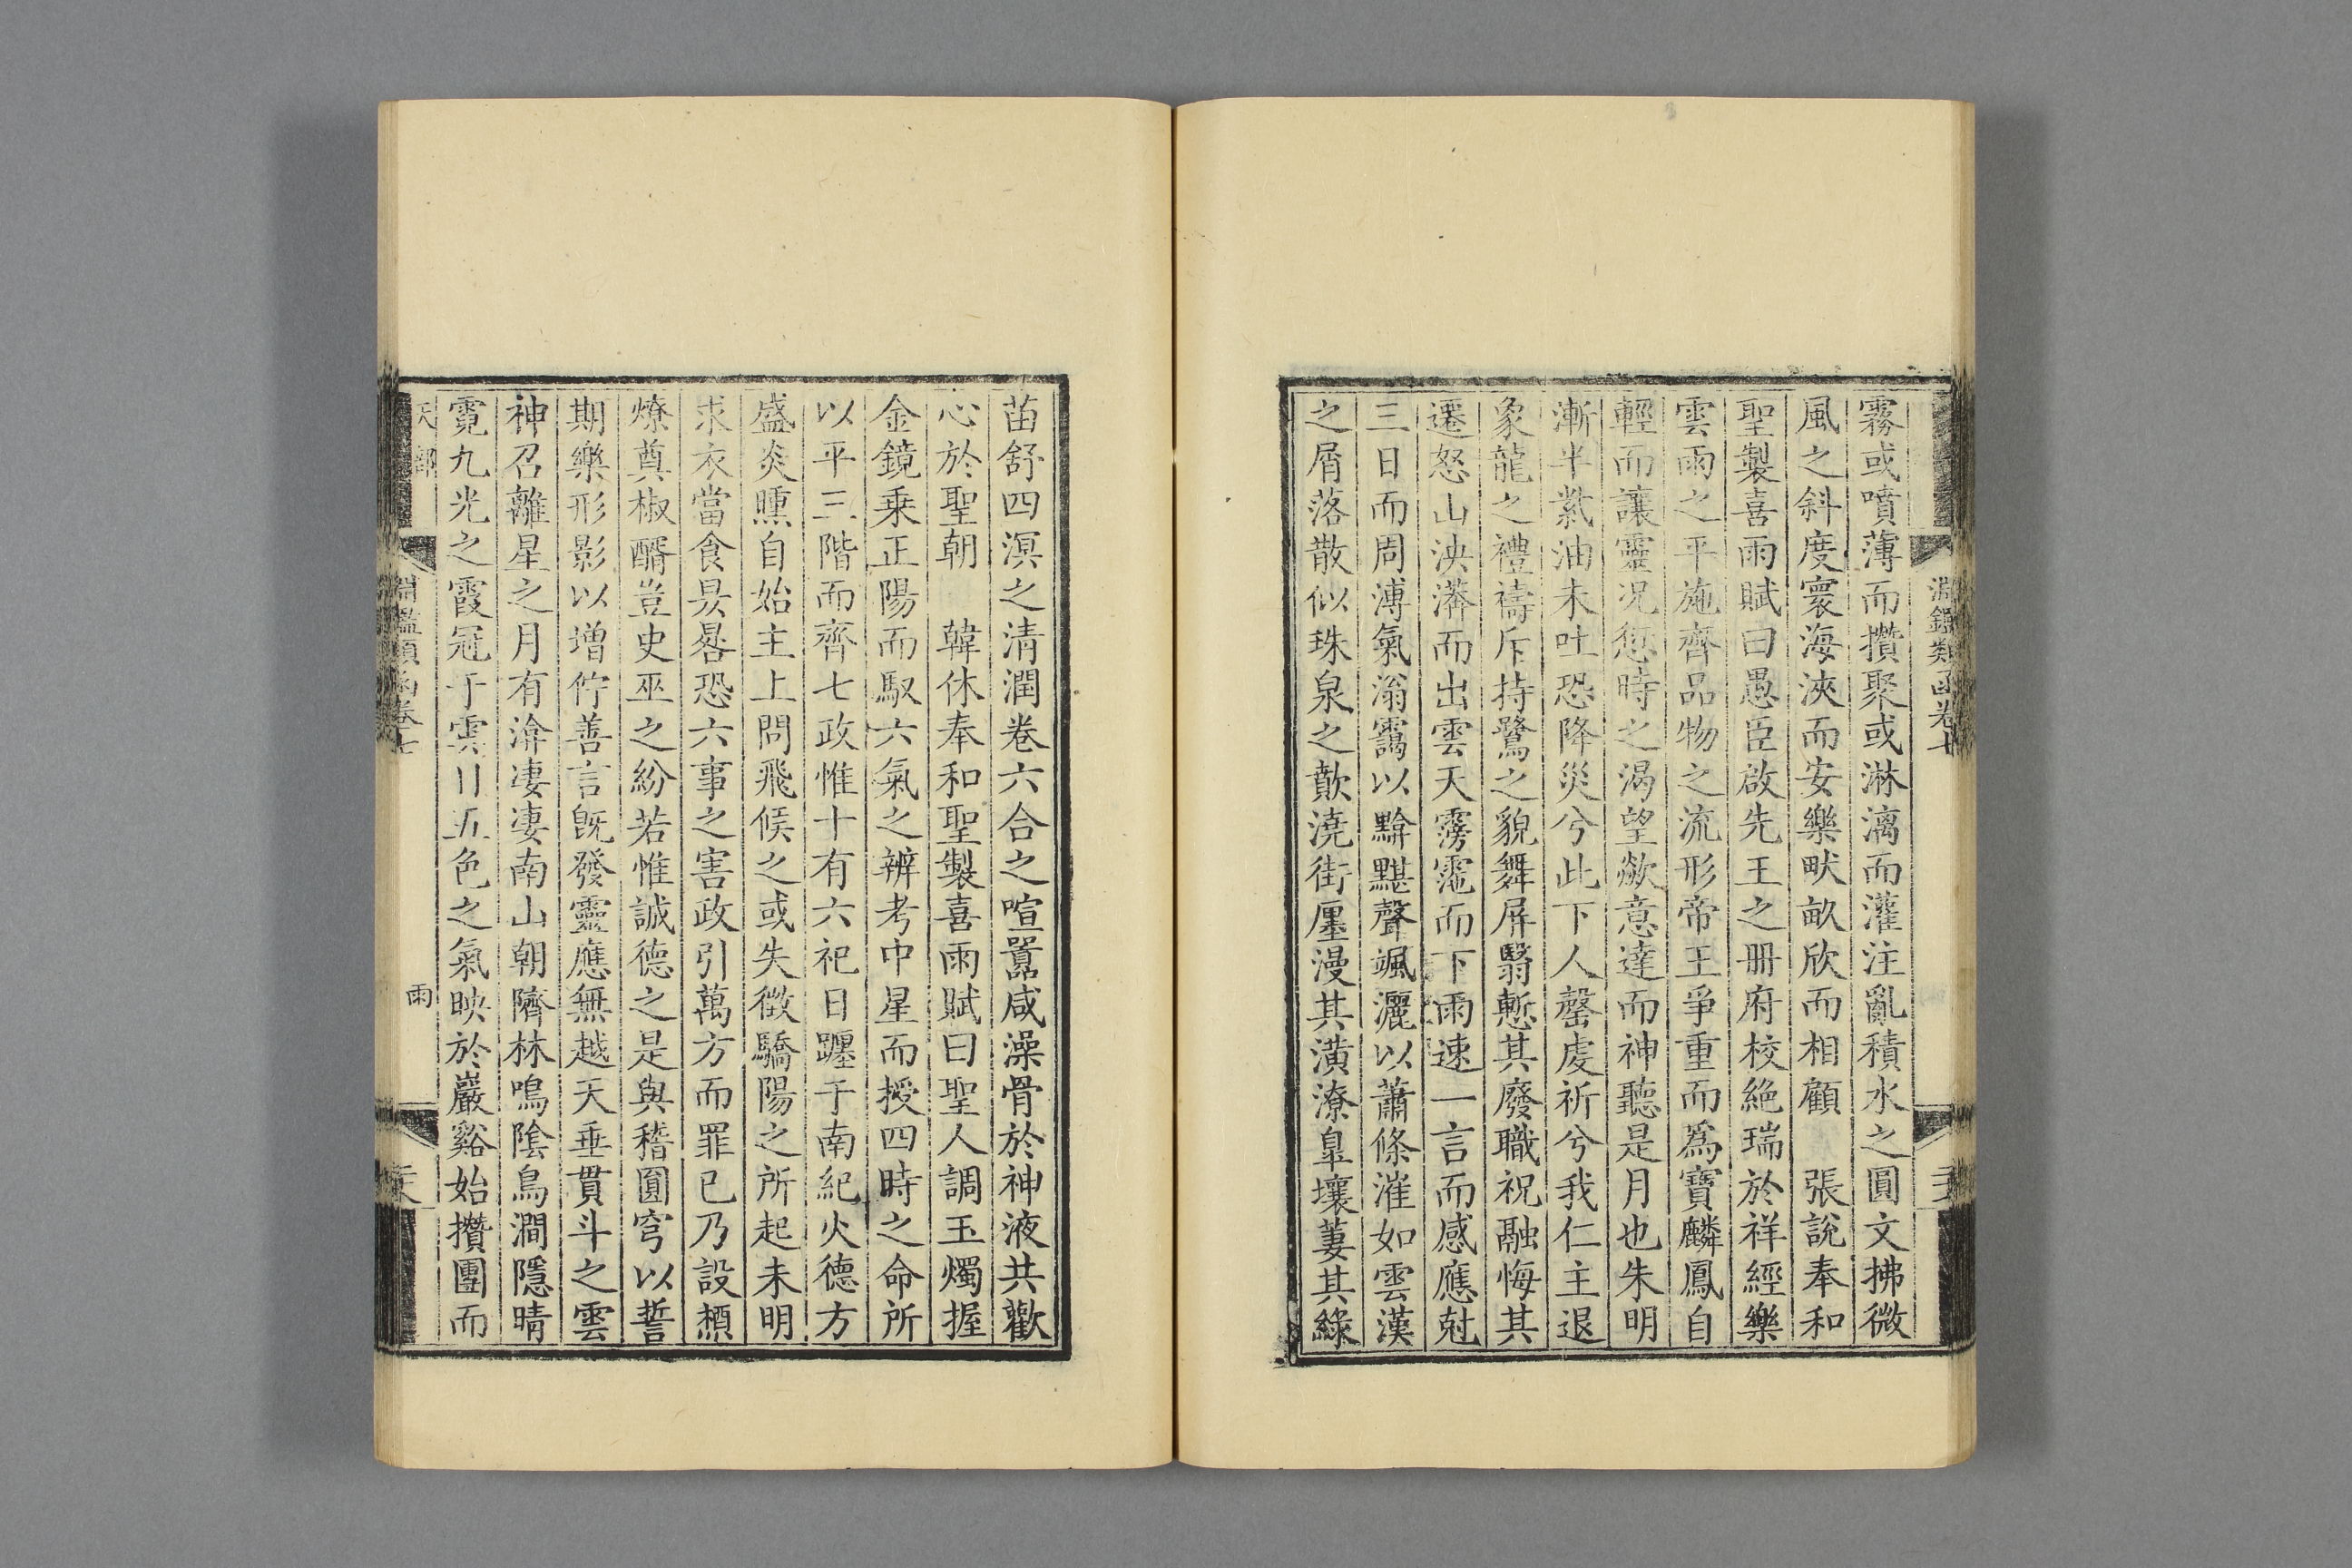 霧或噴薄而攢聚或淋漓而灌注亂積水之圓文拂微
風之斜度寰海浹而安樂畎畝欣而相顧　張說奉和
聖製喜雨賦曰愚臣啟先王之冊府校絕瑞於祥經樂
雲雨之平施齊品物之流形帝王爭重而為寶麟鳳自
輕而讓靈況愆時之渴望歘意達而神聽是月也朱明
漸半紫油未吐恐降災兮此下人罄虔祈兮我仁主退
象龍之禮禱斥持鷺之貌舞屏翳慙其廢職祝融悔其
遷怒山泱漭而出雲天霶霮而下雨速一言而感應尅
三日而周溥氣滃靄以黭黮聲颯灑以蕭條漼如雲漢
之屑落散似珠泉之歕澆街㕓漫其潢潦皐壤萋其綠
苗舒四溟之清潤卷六合之喧囂咸澡骨於神液共歡
心於聖朝　韓休奉和聖製喜雨賦曰聖人調玉燭握
金鏡乗正陽而馭六氣之辨考中星而授四時之命所
以平三階而齊七政惟十有六祀日躔于南紀火德方
盛炎曛自始主上問飛候之或失徵驕陽之所起未明
求衣當食昃晷恐六事之害政引萬方而罪已乃設槱
燎奠椒醑豈史巫之紛若惟誠德之是與稽圓穹以誓
期樂形影以增佇善言旣發靈應無越天垂貫斗之雲
神召離星之月有渰淒淒南山朝隮林鳴陰鳥澗隱晴
霓九光之霞冠于雲川五色之氣映於巖谿始攢團而
天部
淵鑑類函卷七
雨